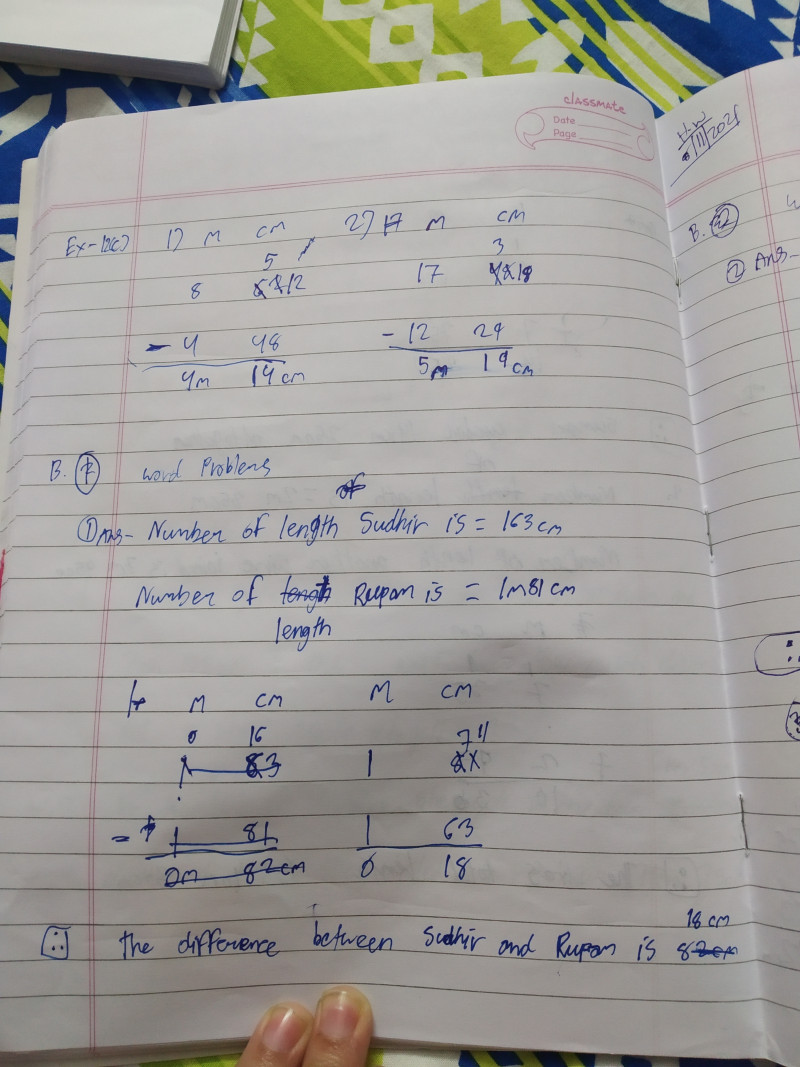 classmate
Date
Page
H.W
11/2021
Ex-12(C) 1) M cm 2) 17 M cm
5 3
8 62 12 17 43 13
- 4 48 - 12 24
4m 14 cm 5m 19 cm
B. word Problems
of
① Ans- Number of length Sudhir is = 163 cm
Number of length Rupam is = 1m81 cm
length
M cm M cm
0 16 7 11
1 63 1 81
- 1 81 1 63
0m 82cm 0 18
18 cm
∴ the difference between Sudhir and Rupam is 82cm
B.
② Ans-